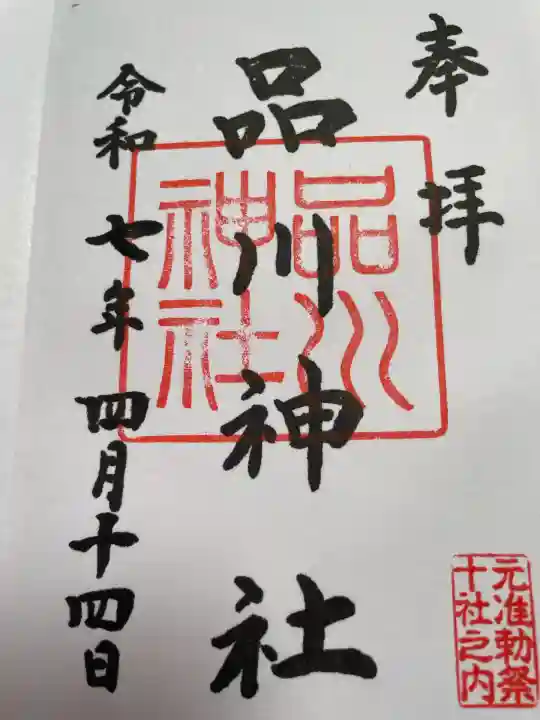 奉拝
品川神社
令和七年四月十四日
品川
神社
元准勅祭
十社之内